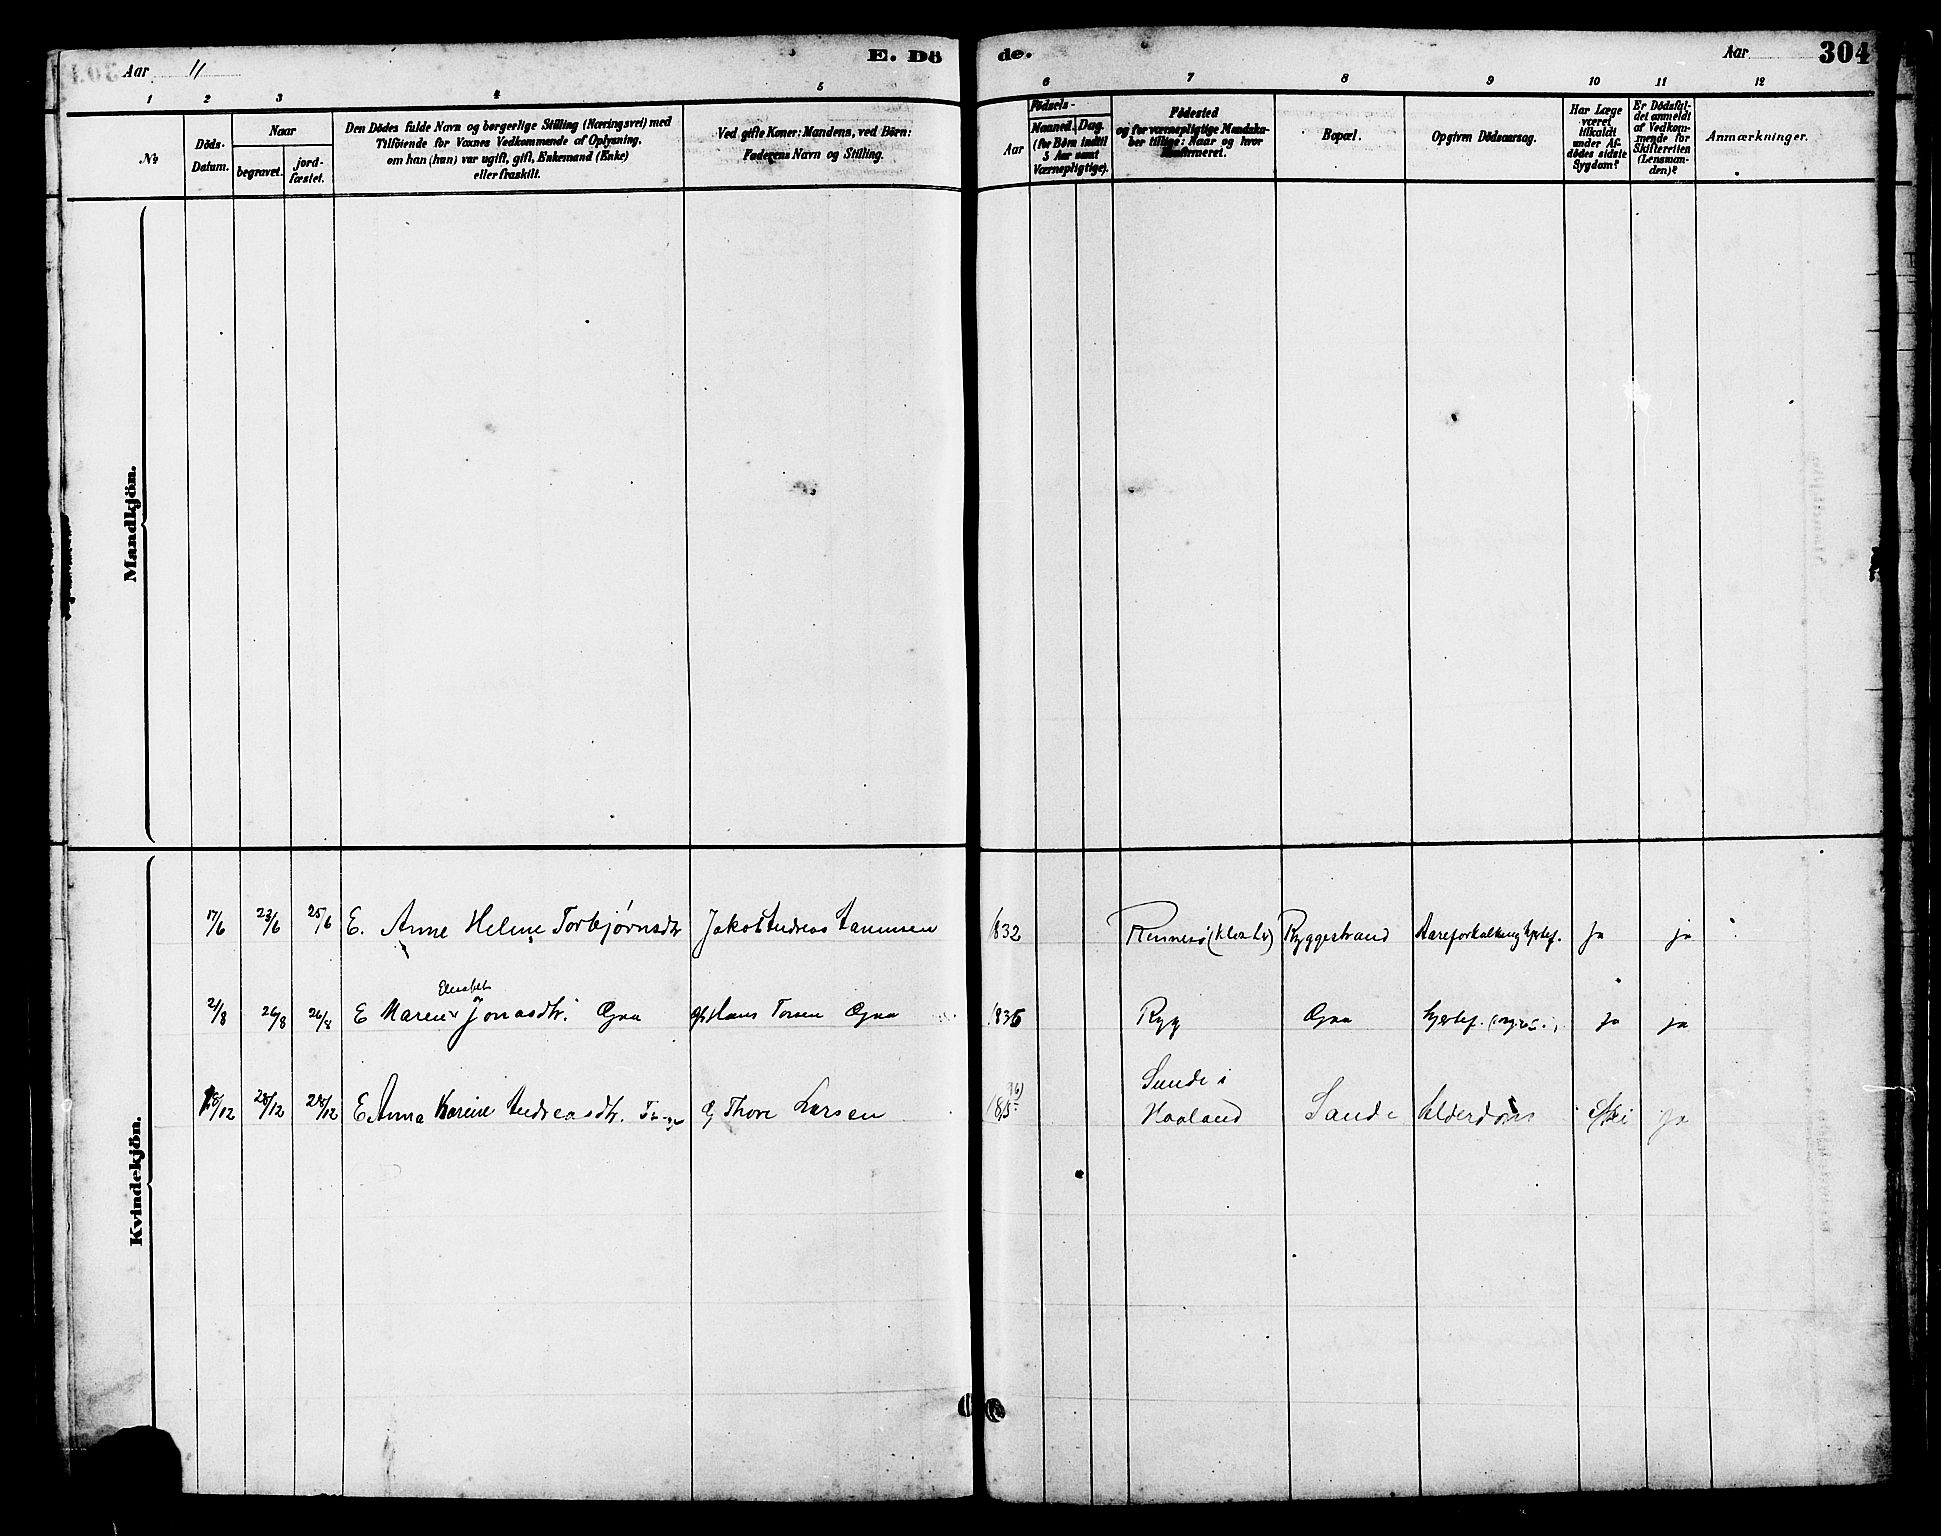 Aar 11
E. Dö
de.
Aar
304
1 2 3 4 5
6 7 8 9 10 11 12
No
Döds-
Datum.
Naar
begravet.
jord-
fæstet.
Den Dödes fulde Navn og borgerlige Stilling (Næringsvei) med
Tilföiende for Voxnes Vedkommende af Oplysning,
om han (hun) var ugift, gift, Enkemand (Enke)
eller fraskilt.
Ved gifte Koner: Mandens, ved Börn:
Faderens Navn og Stilling.
Födsels-
Aar
Maaned. Dag.
(for Börn indtil
5 Aar samt
Værnepligtige).
Födested
og for værnepligtige Mandska-
ber tillige: Naar og hvor
konfirmeret.
Bopæl.
Opgiven Dödsaarsag.
Har Læge
været
tilkaldt
under Af-
dödes sidste
Sygdom?
Er Dödsfal-
det anmeldt
af Vedkom-
mende for
Skifteretten
(Lensman-
den)?
Anmærkninger.
Mandkjön.
Kvindekjön.
17/6 23/6 25/6 E. Anne Heline Torbjørnsdtr Jakob Andreas 1832 Rennesö Ryggestrand Aareforkalkning Hjertef. ja ja
Elisabet
21/8 26/8 26/8 E Maren Jonasdtr. Ogna Hans Ogna 1835 Ryg Ogna Hjertef. ja ja
Sunde i
18/12 28/12 28/12 E Anna Karine Andreasdtr. G Thore Larsen Haaland Sande Alderdom Nei ja